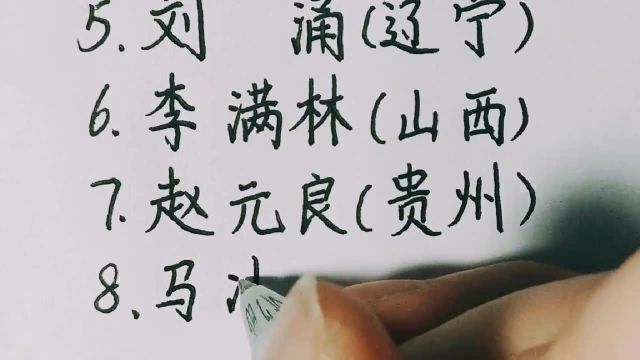 5.刘 涌(辽宁)
6.李满林(山西)
7.赵元良(贵州)
8.马